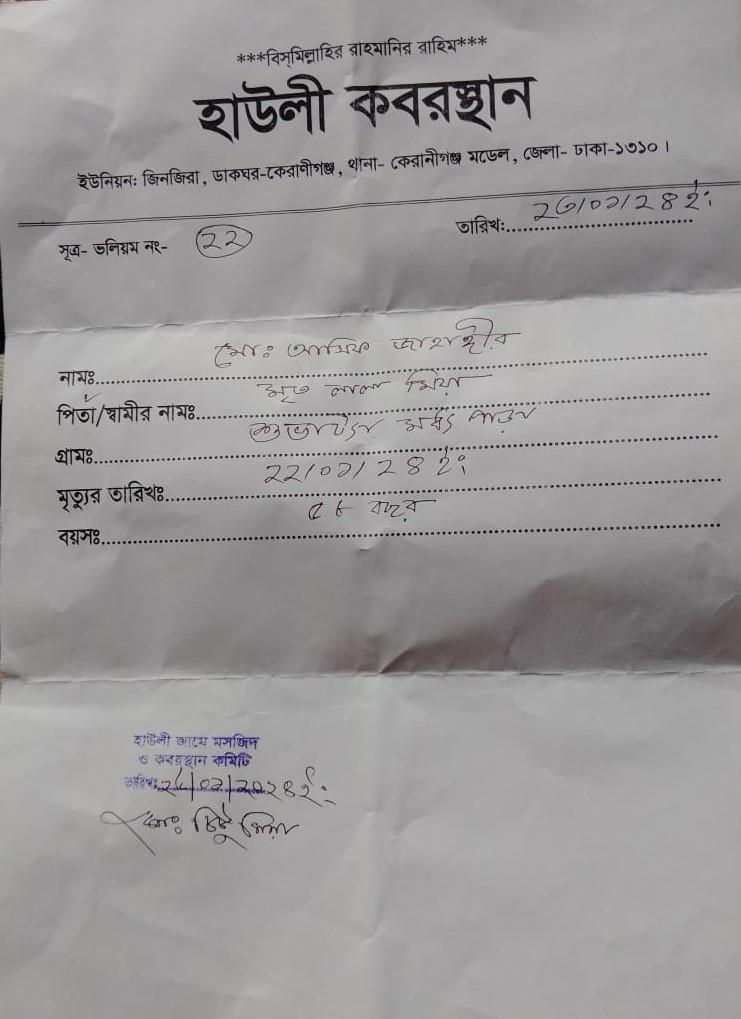 ***বিস্‌মিল্লাহির রাহমানির রাহিম***
হাউলী কবরস্থান
ইউনিয়ন: জিনজিরা, ডাকঘর-কেরাণীগঞ্জ, থানা- কেরানীগঞ্জ মডেল, জেলা- ঢাকা-১৩১০।
সূত্র- ভলিয়ম নং- ২২
তারিখ:
নামঃ মোঃ আসিফ জাহাঙ্গীর
পিতা/স্বামীর নামঃ মৃত লাল মিয়া
গ্রামঃ পাড়া
মৃত্যুর তারিখঃ ২২/০৭/২৪ ইং
বয়সঃ ৫৮ বছর
হাউলী জামে মসজিদ
ও কবরস্থান কমিটি
তারিখঃ
মোঃ মিয়া